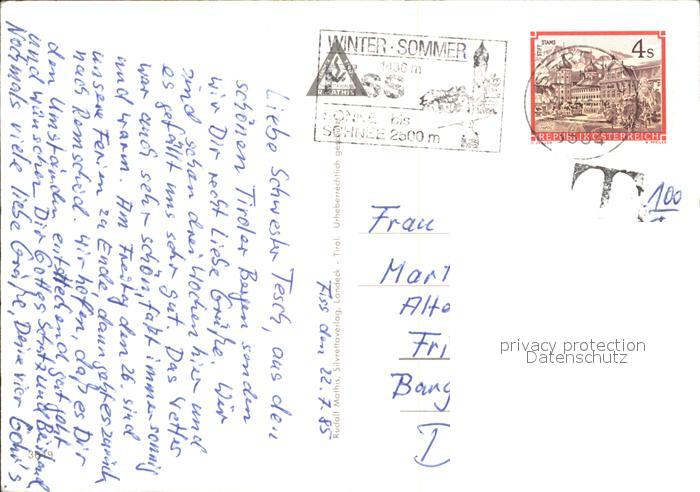 WINTER · SOMMER
1436 m
FISS
MATHIS
SONNE bis
SCHNEE 2500 m
STIFT STAMS
4 S
REPUBLIK ÖSTERREICH
T
100
Liebe Schwester Tesch, aus den
schönen Tiroler Bergen senden
wir Dir recht liebe Grüße. Wir
sind schon drei Wochen hier und
es gefällt uns sehr gut. Das Wetter
war auch sehr schön, fast immer sonnig
und warm. Am Freitag den 26. sind
unsere Ferien zu Ende, dann geht es zurück
nach Remscheid. Wir hoffen, daß es Dir
den Umständen entsprechend gut geht
und wünschen Dir Gottes Schutz und Beistand
Nochmals viele liebe Grüße, Deine vier
Fiss den 22.7.85
Rudolf Mathis, Silvrettaverlag, Landeck - Tirol. Urheberrechtlich
Frau
Mart
Alte
Fri
Bang
D
privacy protection
Datenschutz